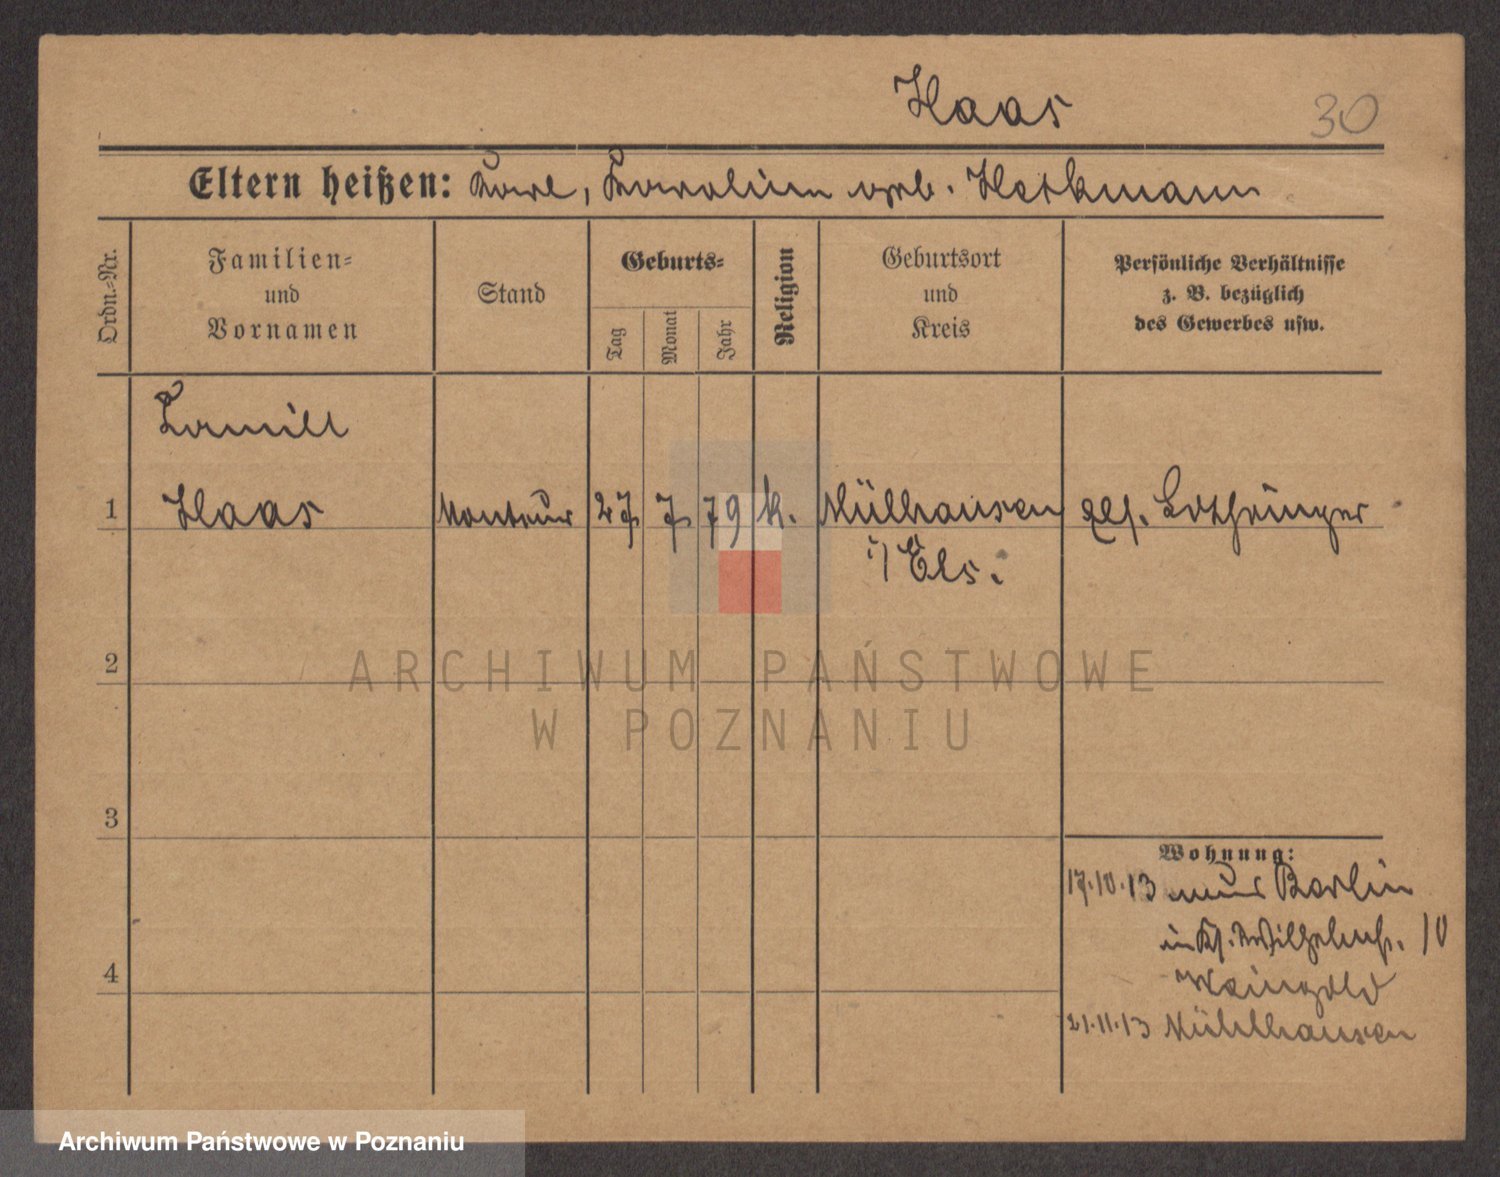 Haas 30
Eltern heißen: Karl, Karolina geb. Heckmann
Ordn.-Nr.
Familien-
und
Vornamen
Stand
Geburts-
Tag
Monat
Jahr
Religion
Geburtsort
und
Kreis
Persönliche Verhältnisse
z. B. bezüglich
des Gewerbes usw.
Kamill
1 Haas Monteur 27 7 79 k. Mülhausen Els. Lothringer
i/Els.
2
3
4
Wohnung:
17.10.13 Berlin
10
Weingold
21.11.13 Mühlhausen
ARCHIWUM PAŃSTWOWE
W POZNANIU
Archiwum Państwowe w Poznaniu